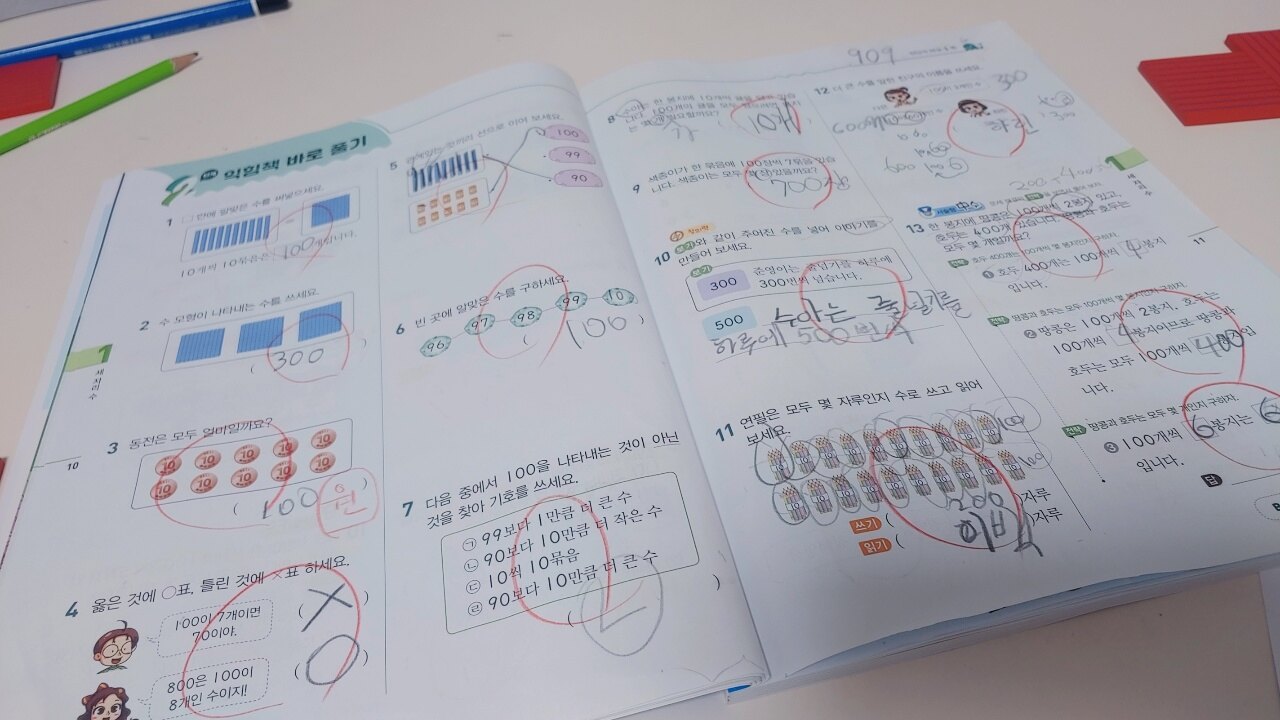 익힘책 바로 풀기
1 □ 안에 알맞은 수를 써넣으세요.
10개씩 10묶음은 100개입니다.
2 수 모형이 나타내는 수를 쓰세요.
( 300 )
3 동전은 모두 얼마일까요?
10 10 10 10 10
10 10 10 10 10
( 100원 )
4 옳은 것에 ○표, 틀린 것에 ×표 하세요.
100이 7개이면
70이야.
( X )
800은 100이
8개인 수이지!
( O )
1
세 자리 수
10
5
선으로 이어 보세요.
100
99
90
6 빈 곳에 알맞은 수를 구하세요.
96 97 98 99
( 100 )
7 다음 중에서 100을 나타내는 것이 아닌
것을 찾아 기호를 쓰세요.
㉠ 99보다 1만큼 더 큰 수
㉡ 90보다 10만큼 더 작은 수
㉢ 10씩 10묶음
㉣ 90보다 10만큼 더 큰 수
( ㄴ )
909
8
( 10개 )
9 색종이가 한 묶음에 100장씩 7묶음 있습
니다. 색종이는 모두 몇 장 있을까요?
( 700장 )
창의력
10 보기와 같이 주어진 수를 넣어 이야기를
만들어 보세요.
보기
300 준영이는 줄넘기를 하루에
300번씩 넘습니다.
500 수아는 줄넘기를
하루에 500번씩
11 연필은 모두 몇 자루인지 수로 쓰고 읽어
보세요.
100
100
쓰기 ( 200 )자루
읽기 ( 이백 )자루
12 더 큰 수를 말한 친구의 이름을 쓰세요.
300
( 하린 )
600
13 한 봉지에 땅콩은 100개씩 2봉지 있고,
호두는 400개 있습니다. 땅콩과 호두는
모두 몇 개일까요?
전략
❶ 호두 400개는 100개씩 4봉지
입니다.
전략 땅콩과 호두는 모두 100개씩 몇 봉지인지 구하자.
❷ 땅콩은 100개씩 2봉지, 호두는
100개씩 4봉지이므로 땅콩과
호두는 모두 100개씩
니다.
전략 땅콩과 호두는 모두 몇 개인지 구하자.
❸ 100개씩 6봉지는
입니다.
답
1
세 자리 수
11